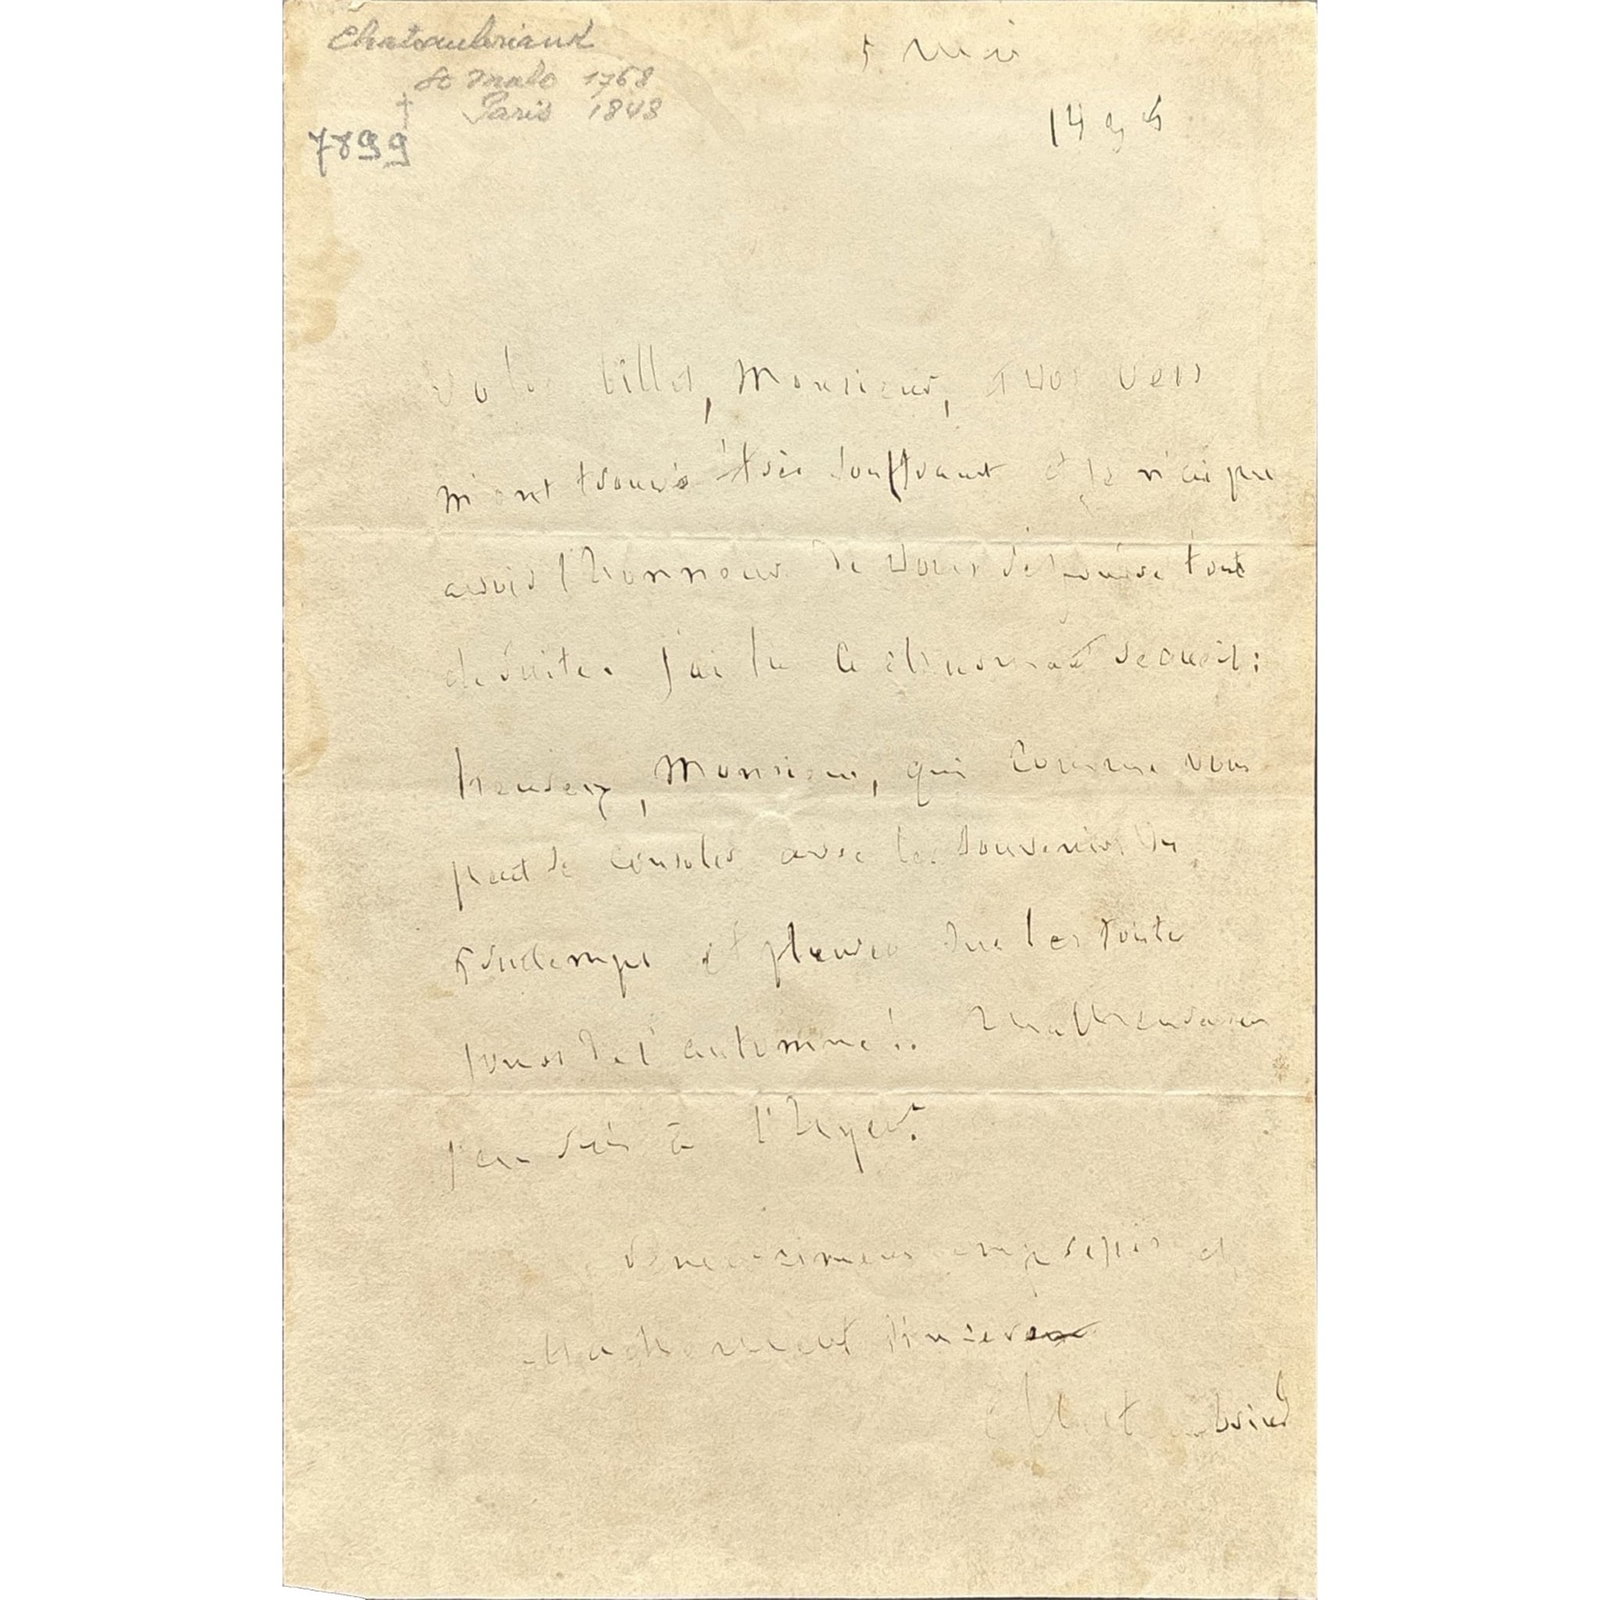 Chateaubriand
St Malo 1768
† Paris 1848
7899
5 mai
Votre billet, Monsieur, et vos vers
m'ont trouvé très souffrant et je n'ai pu
avoir l'honneur de vous répondre tout
de suite. j'ai lu le charmant recueil:
heureux, Monsieur, qui comme vous
peut se consoler avec les souvenirs du
printemps et pleurer sur les
jours de l'automne! Malheureusement
j'en suis à l'hyver.
empressés et
attachement sincère
Chateaubriand